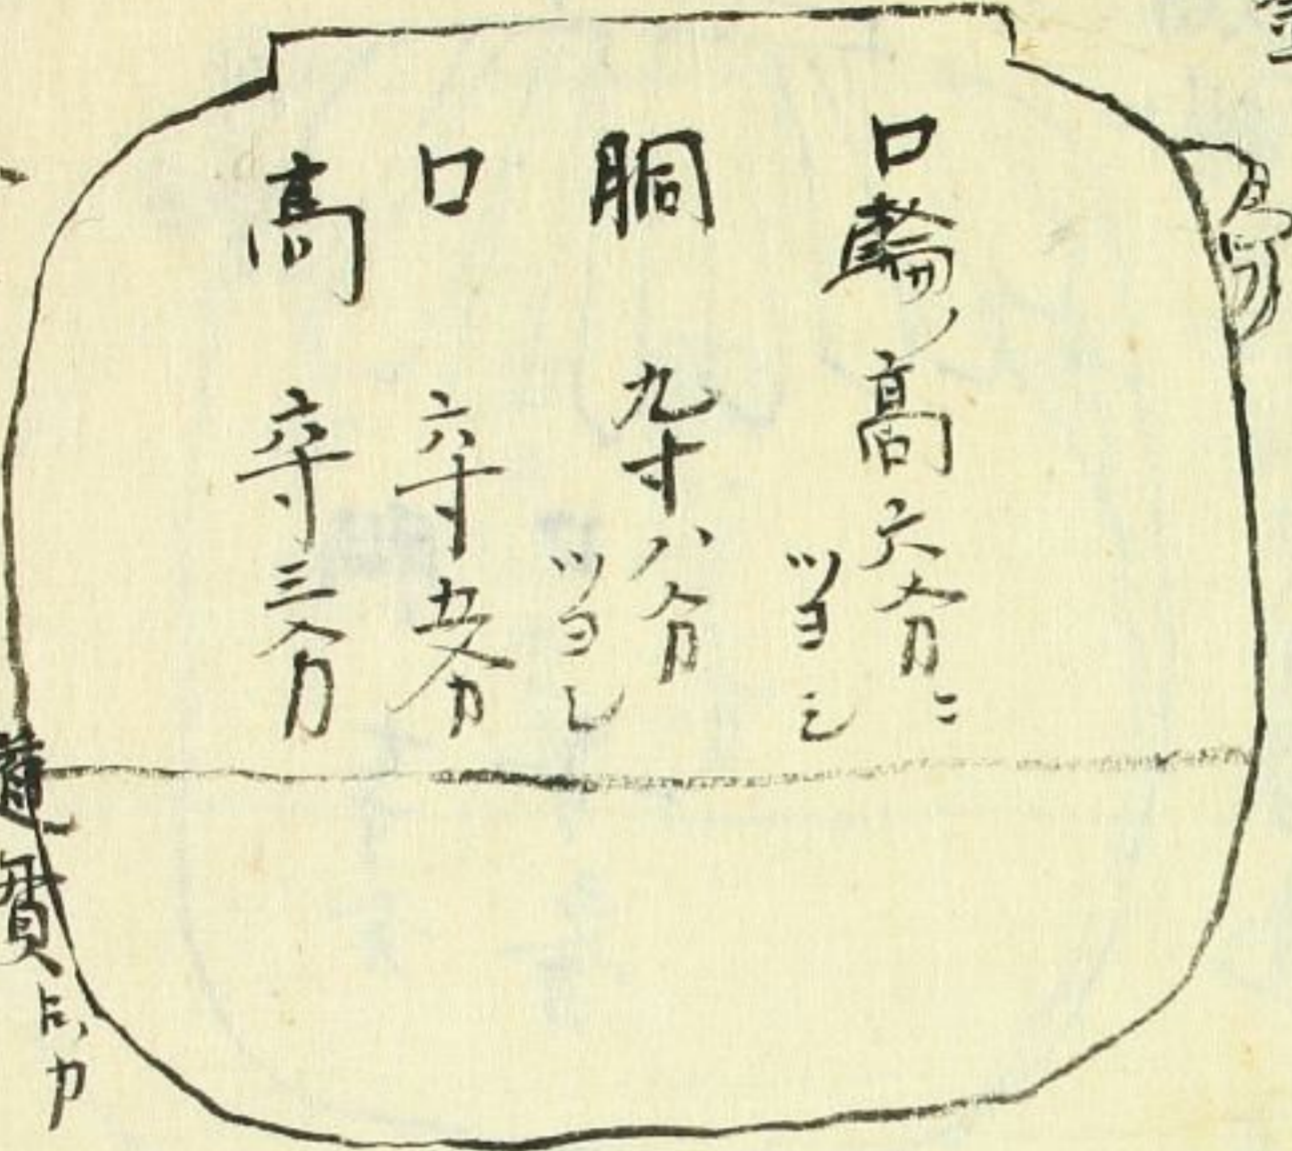 口輪ノ高六分ニ
ツヨシ
胴 九寸八分
ツヨし
口 六寸五分
高 六寸三分